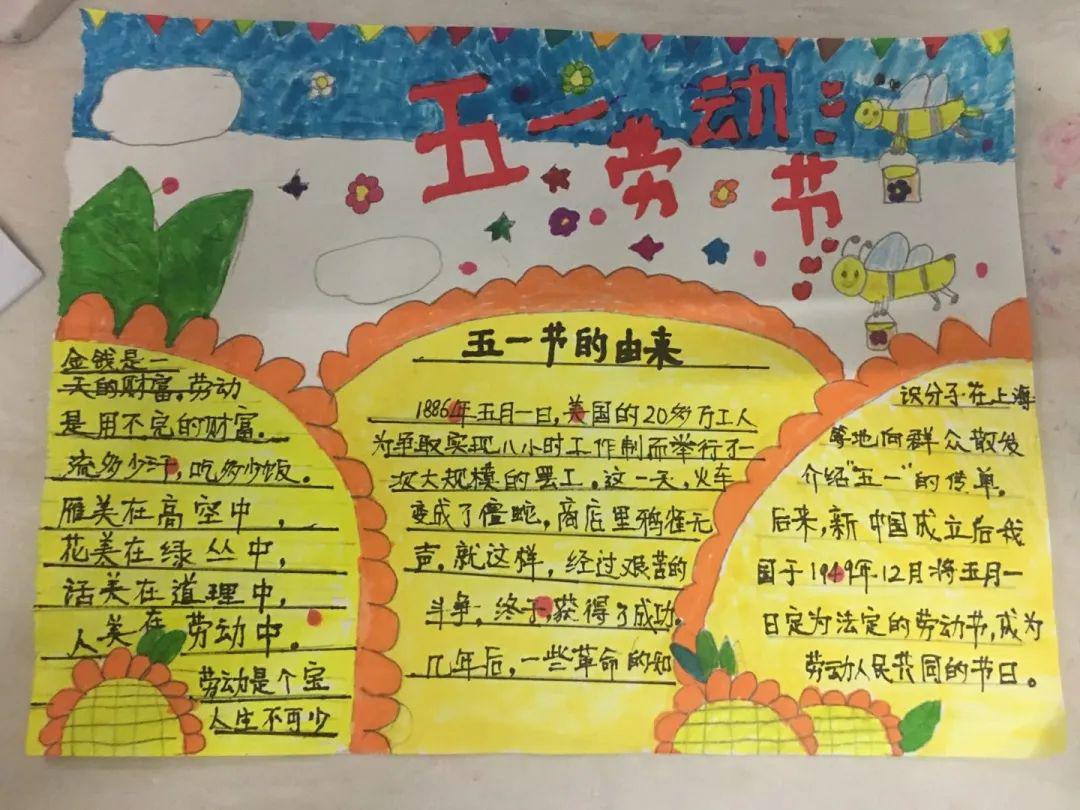 五一劳动节
金钱是一
天的财富。劳动
是用不完的财富。
流多少汗，吃多少饭。
雁美在高空中，
花美在绿丛中，
话美在道理中，
人美在劳动中。
劳动是个宝
人生不可少
五一节的由来
1886年五月一日，美国的20多万工人
为争取实现八小时工作制而举行了一
次大规模的罢工。这一天，火车
变成了僵蛇，商店里鸦雀无
声。就这样，经过艰苦的
斗争，终于获得了成功。
几年后，一些革命的知
识分子在上海
等地向群众散发
介绍“五一”的传单。
后来，新中国成立后我
国于1949年12月将五月一
日定为法定的劳动节，成为
劳动人民共同的节日。